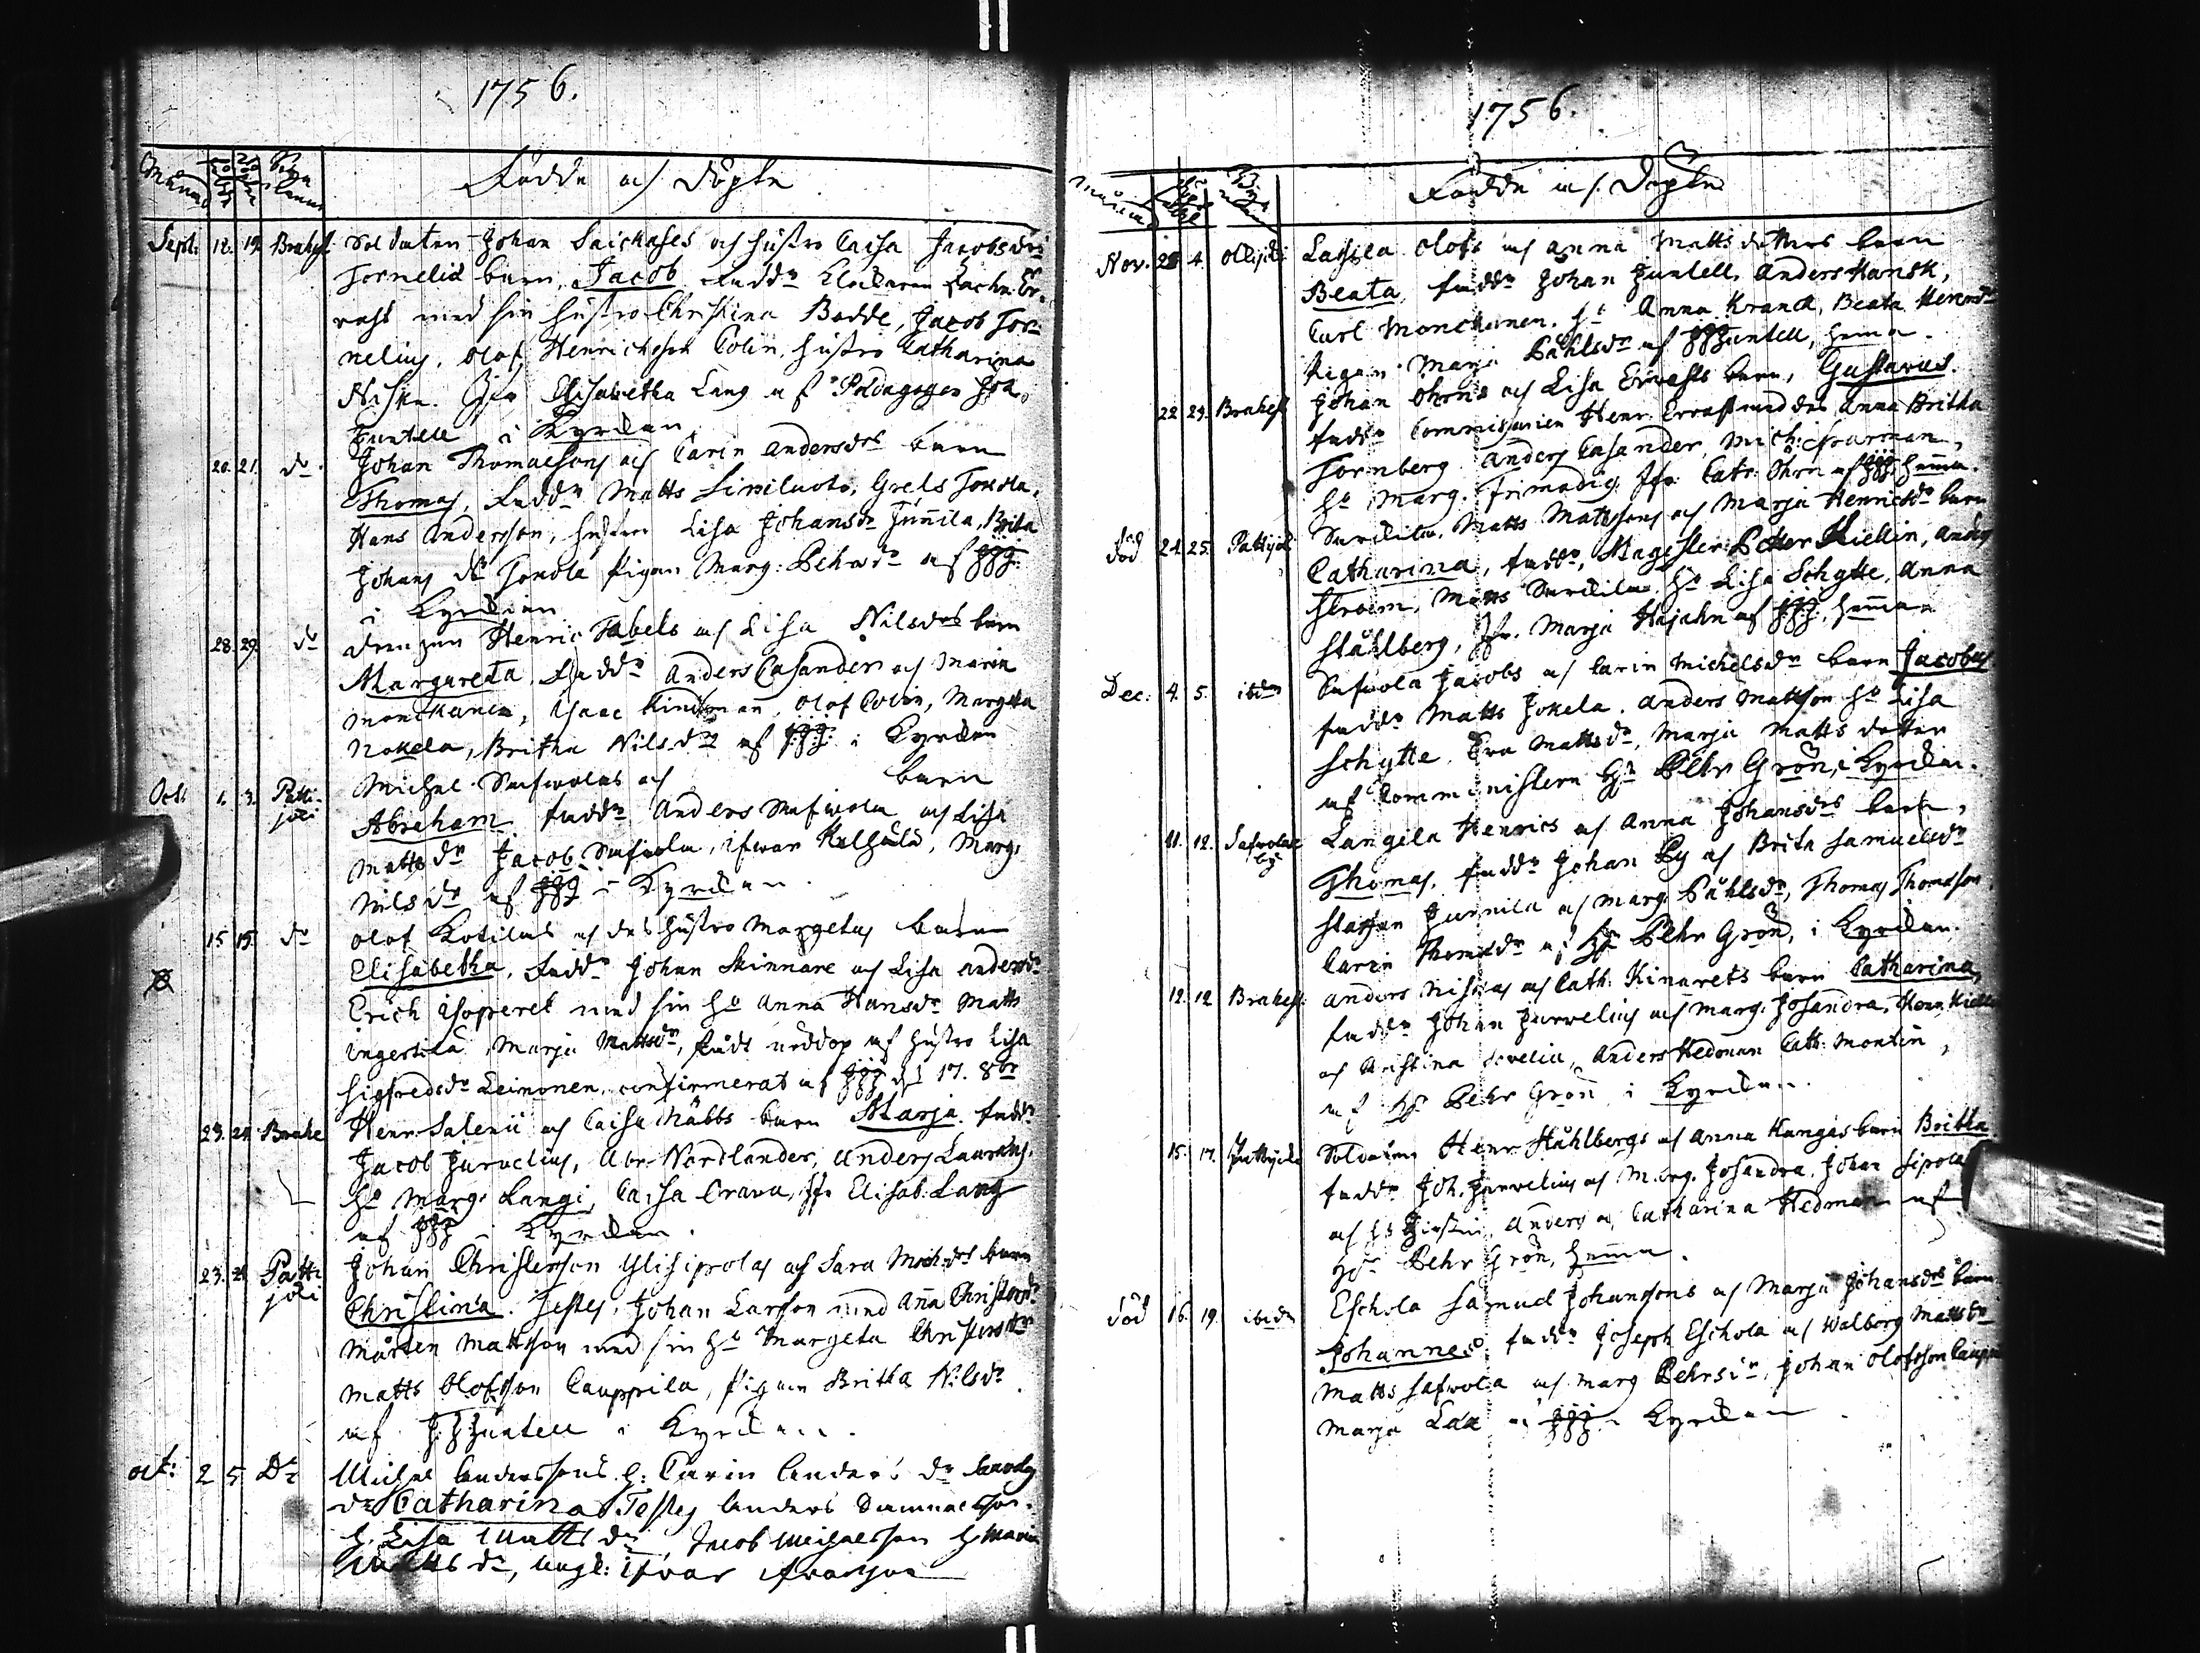 1756.
Månad
Födde och Döpte
Sept: 12. 19. Brahest. Soldaten Johan Saickases och hustro Caisa Jacobsdrs
Fornelia barn, Jacob. Fadd:r Klockaren Zachr. Er-
vast med sin hustro Christina Bodde, Jacob For-
nelius, Olof Henrichsson Colin, hustro Catharina
Niska. Jfr Elisabetha Lang af Pædagogen Joh.
Juntell i Kyrckan
20. 21. do. Johan Thomaesons och Carin Andersdrs barn
Thomas, Fadd:r Matts Siniluoto, Grels Jokela,
Hans Andersson, hustru Lisa Johansdr Junnila, Brita
Johans dr Jokela Pigan Marg: Pehrsdr af JJJ.
i Kyrckan
28. 29. do Henric Tabels och Lisa Nilsdrs barn
Margareta, Fadd:r Anders Casander och Maria
Monckanen, Isaac Kindman, Olof Colin, Margeta
Nokela, Britha Nilsdr af JJJ. i Kyrckan
Oct: 1. 3. Patti-
joki
Michel Safwolas och barn
Abraham. fadd:r Anders Safwola och Lisa
Matts dr Jacob Safwola, Ifwar, Marg:
Nils dr af JJJ i Kyrckan.
15 15. do Olof Kotilas och des hustro Margetas barn
Elisabetha, Fadd:r Johan Skinnare och Lisa Andersdr
Erich Isoperet med sin ho Anna Hansdr Matts
Ingerkilä, Marja Mattsdr, fådt nöddop af hustro Lisa
Sigfredsdr Leinonen, confirmerat af JJJ d. 17. 8br
23. 24. Brahe Henr Salenii och Caisa Näbbs barn Marja. fadd:r
Jacob Jurvelius, Abr. Nordlander, Anders Lauraeus,
ho Marg: Langi, Caisa Crava, Jfr Elisab: Lang
af JJJ i Kyrckan.
23. 24 Patti
joki
Johan Christersson Ylisipolas och Sara Mich:drs barn
Christina. Testes, Johan Larsson med Anna Christersdr
Mårten Mattsson med sin ho Margeta Christersdr
Matts Olofsson Cauppila, pigan Britha Nilsdr
af J.J. Juntell i Kyrckan.
oct: 2 5 Do Michel Anderssons h: Carin Anders dr
Catharina Testes Anders Samuelsson.
h. Lisa Matts dr, Jacob Michelsson h Maria
Matts dr, Ungk: Ifvar Ifvarsson
1756.
Månad
Födde och Döpte
Nov. 28 4. Ollijoki Lassila Olofs och Anna Matts dotters barn
Beata, fadd:r Johan Juntell, Anders Hansk,
Carl Monckanen, ho Anna Kranck, Beata Henrsdr
Pigan Marja Påhlsdr af JJJuntell, hema.
22 23. Brahest Johan Öhrns och Lisa Ervasts barn, Gustavus.
fadd:r Commissarien Henr: Ervast med des Anna Britha
Tornberg Anders Casander, Mich: Frarman,
ho Marg. Frimodig Jfr: Catr: Öhrn af JJJ. hema.
död 24. 25. Pattijok Surckila, Matts Mattssons och Marja Henricsdr barn
Catharina, fadd:r, Magister Petter Kiellin, Anders
Ström, Matts Surckila, ho Lisa Schytte, Anna
Ståhlberg, Jfr. Marja Hajahn af JJJ. hemma
Dec: 4. 5. ibdm Safwola Jacobs och Carin Michelsdr barn Jacobus
fadd:r Matts Jokela. Anders Mattsson ho Lisa
Schytte, Eva Mattsdr, Marja Matts dotter
af Comministern Hr Pehr Grön, i Kyrckan.
11. 12. Safwolax
by
Langila Henrics och Anna Johansdrs barn,
Thomas, fadd:r Johan Py och Brita Samuelsdr
Staffan Junnila och Marg. Påhlsdr, Thomas Thomsson,
Carin Thomsdr af Hr Pehr Grön, i Kyrckan.
12. 12 Brahest. Anders Niskas och Cath: Kinarets barn Catharina,
fadd:r Johan Jurvelius och Marg. Josandra, Henr
och Christina, Anders Hedman Cath: Montin,
af Hr Pehr Grön i Kyrckan.
15. 17. Pattijocki Soldatens Henr Ståhlbergs och Anna Kangas barn Britha
fadd:r Joh. Jurvelius och Marg. Josandra, Johan Sipola
och hs Kirstin, Anders och Catharina Hedman af
Hr Pehr Grön, hemma.
död 16. 19. ibidm Eschola Samuel Johanssons och Marja Johansdrs barn
Johannes, fadd:r Joseph Eschola och Walborg Mattsdr
Matts Safwola och Marg Pehrsdr, Johan Olofsson
Marja af JJJ. i Kyrckan.